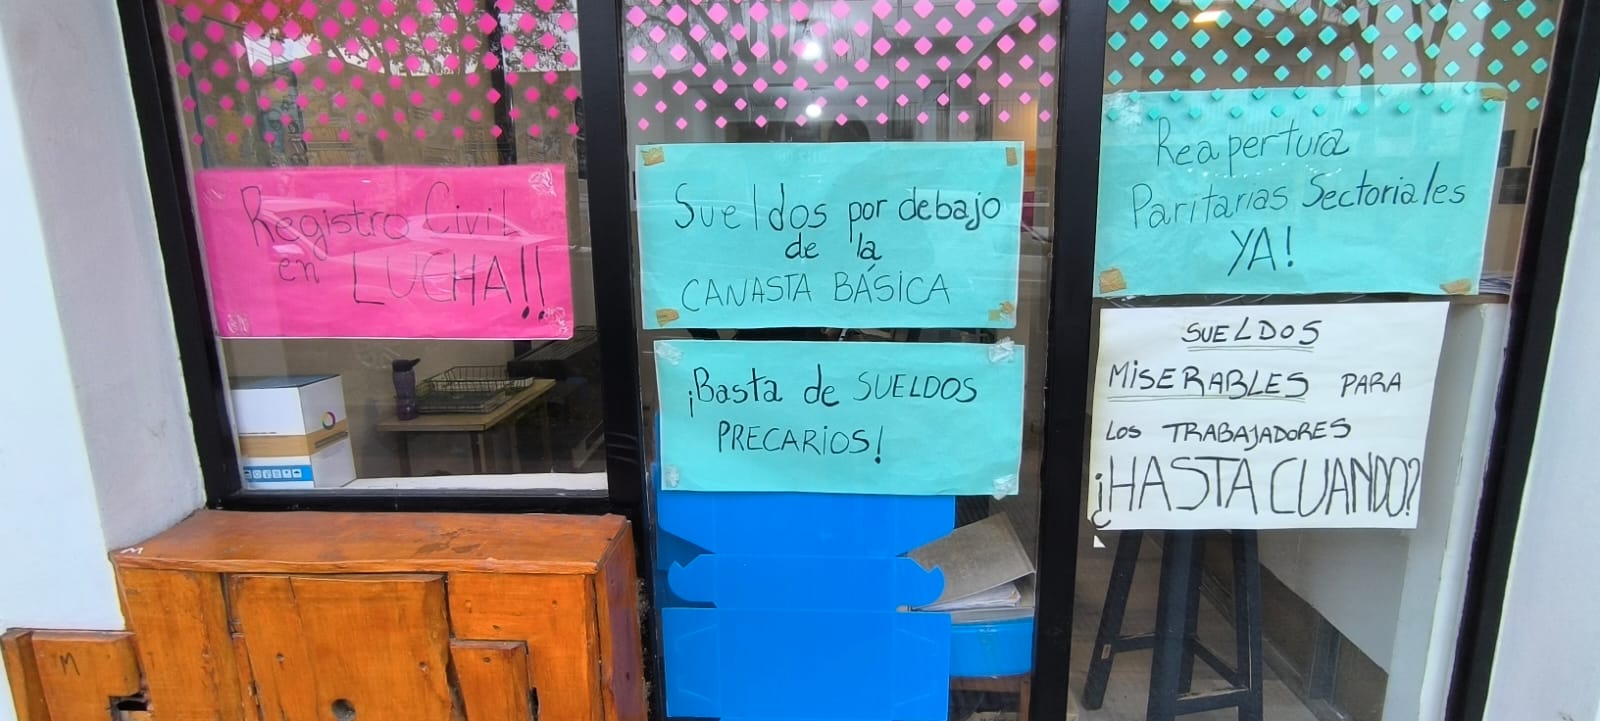 Registro Civil
en LUCHA!!
Sueldos por debajo
de la
CANASTA BÁSICA
¡Basta de SUELDOS
PRECARIOS!
Reapertura
Paritarias Sectoriales
YA!
SUELDOS
MISERABLES PARA
LOS TRABAJADORES
¡HASTA CUANDO?
M
M